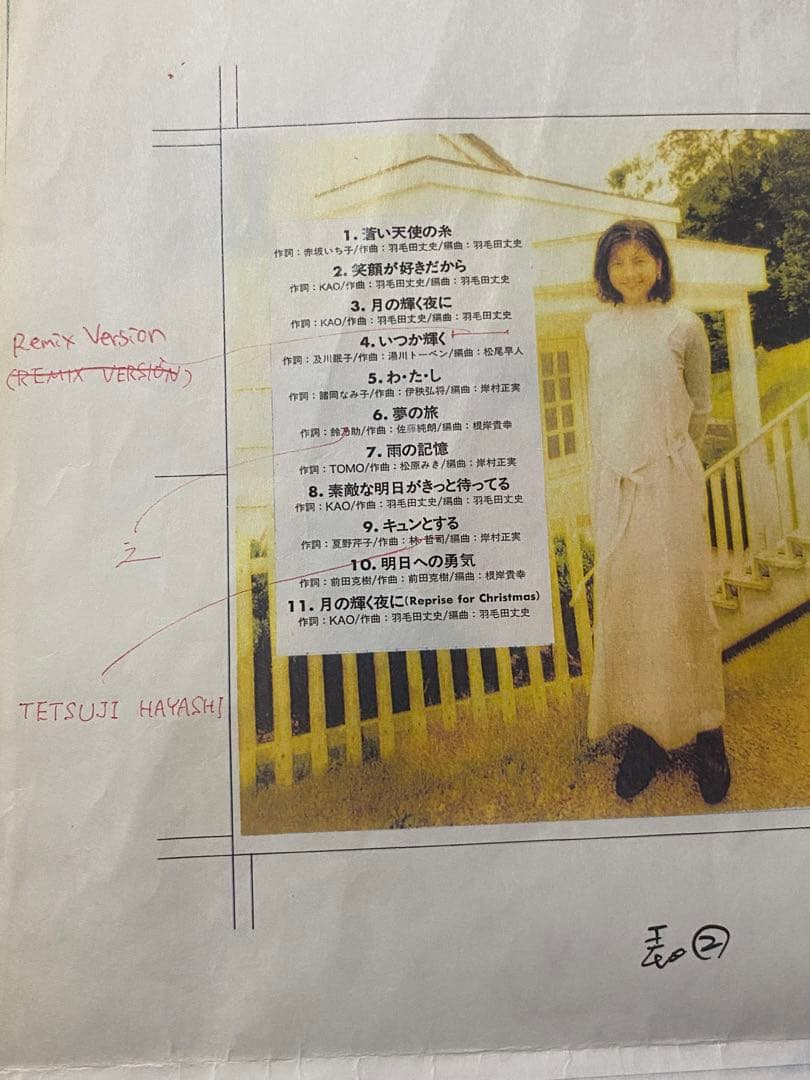 1. 蒼い天使の糸
作詞：赤坂いち子/作曲：羽毛田丈史/編曲：羽毛田丈史
2. 笑顔が好きだから
作詞：KAO/作曲：羽毛田丈史/編曲：羽毛田丈史
3. 月の輝く夜に
作詞：KAO/作曲：羽毛田丈史/編曲：羽毛田丈史
Remix Version
(REMIX VERSION)
4. いつか輝く
作詞：及川眠子/作曲：湯川トーベン/編曲：松尾早人
5. わ・た・し
作詞：諸岡なみ子/作曲：伊秩弘将/編曲：岸村正実
6. 夢の旅
作詞：鈴乃助/作曲：佐藤純朗/編曲：根岸貴幸
7. 雨の記憶
作詞：TOMO/作曲：松原みき/編曲：岸村正実
8. 素敵な明日がきっと待ってる
作詞：KAO/作曲：羽毛田丈史/編曲：羽毛田丈史
之
9. キュンとする
作詞：夏野芹子/作曲：林 哲司/編曲：岸村正実
10. 明日への勇気
作詞：前田克樹/作曲：前田克樹/編曲：根岸貴幸
11. 月の輝く夜に(Reprise for Christmas)
作詞：KAO/作曲：羽毛田丈史/編曲：羽毛田丈史
TETSUJI HAYASHI
表②